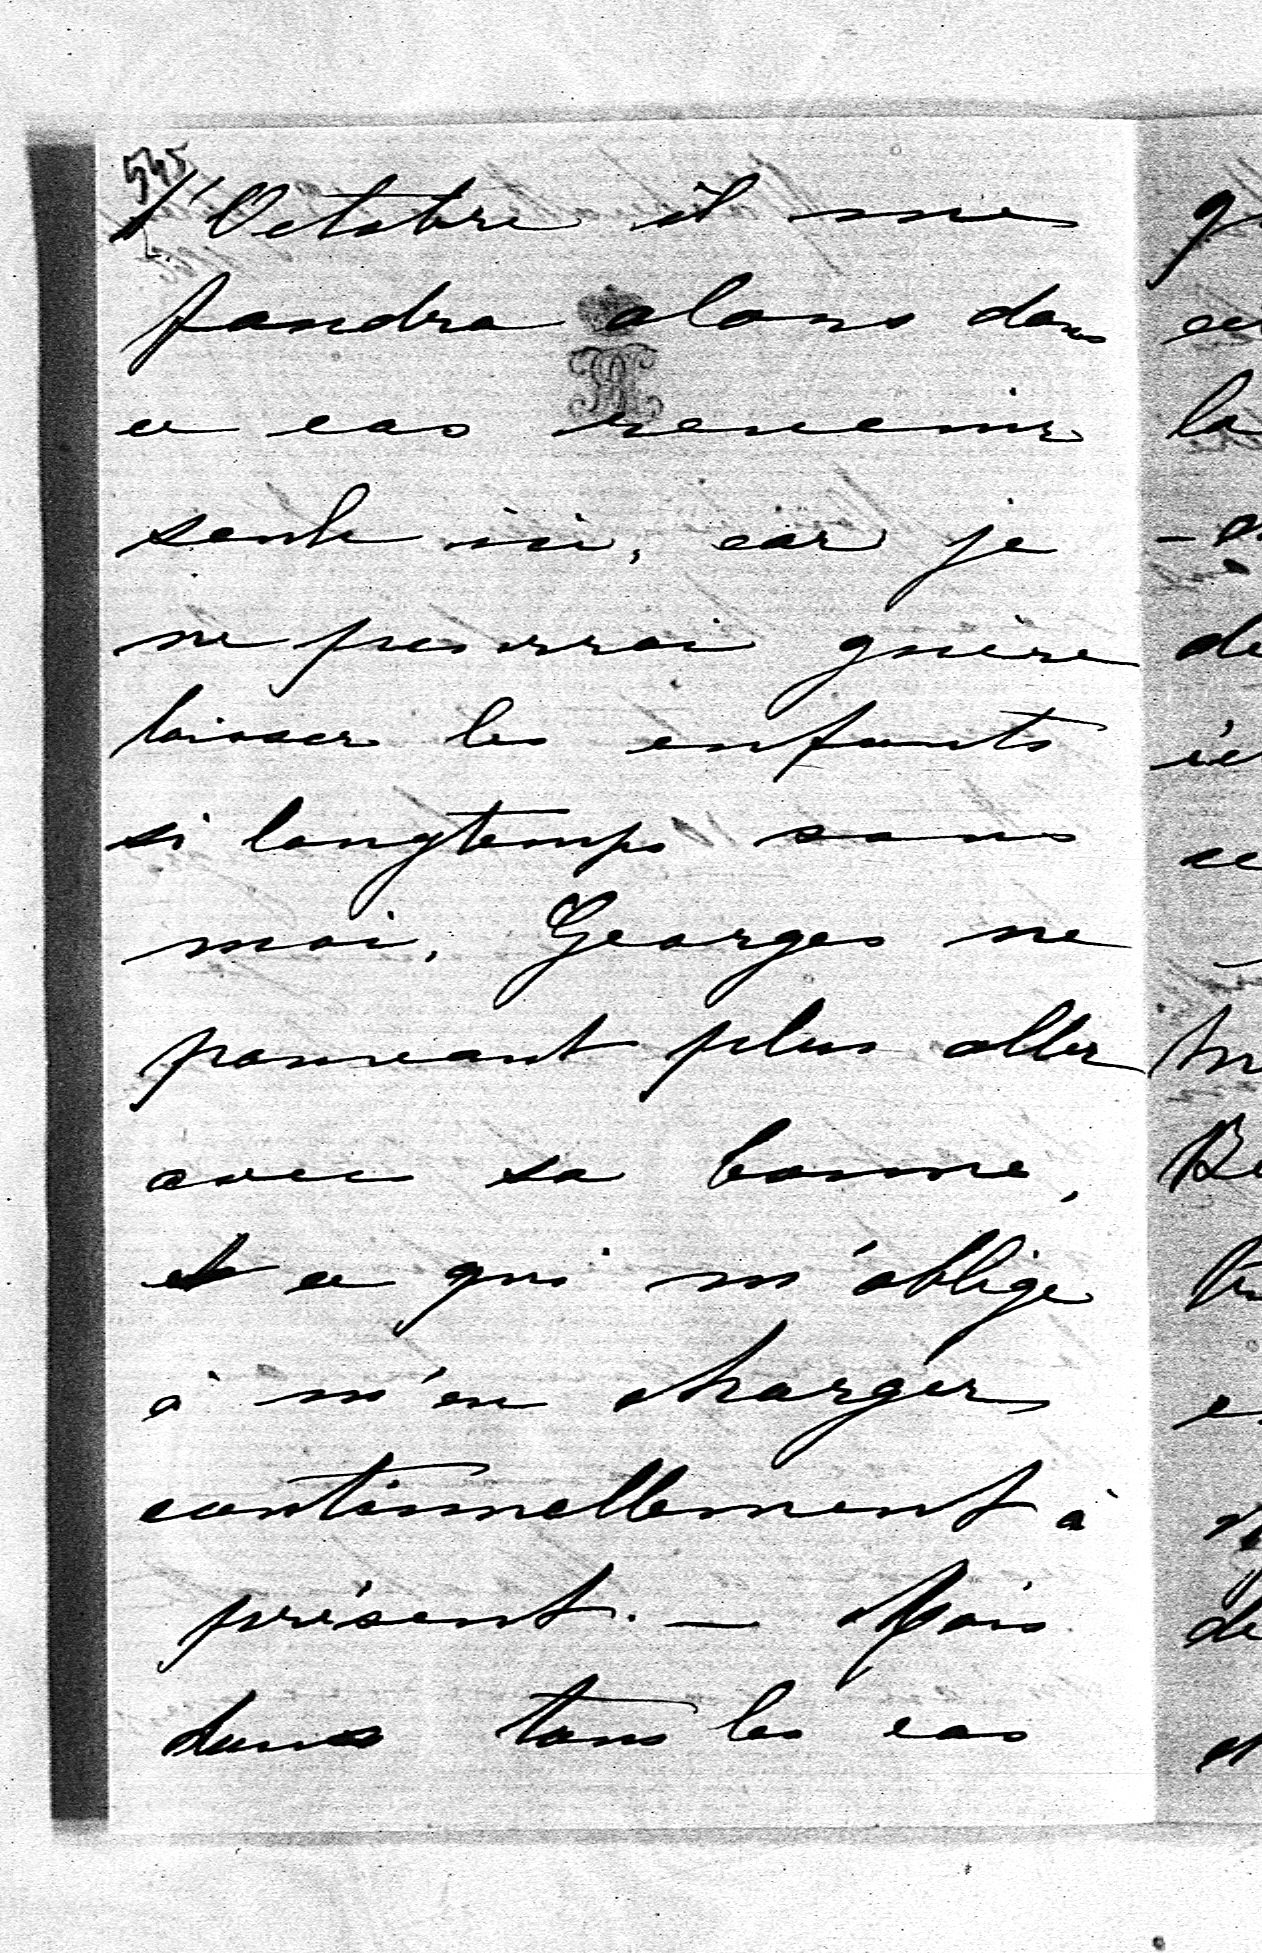 545
d'Octobre il me
faudra alors dans
ce cas revenir
seule ici, car je
ne pourrai guère
laisser les enfants
si longtemps sans
moi, Georges ne
pouvant plus aller
avec sa bonne,
et ce qui m'oblige
à m'en charger
continuellement à
présent. — Mais
dans tous les cas